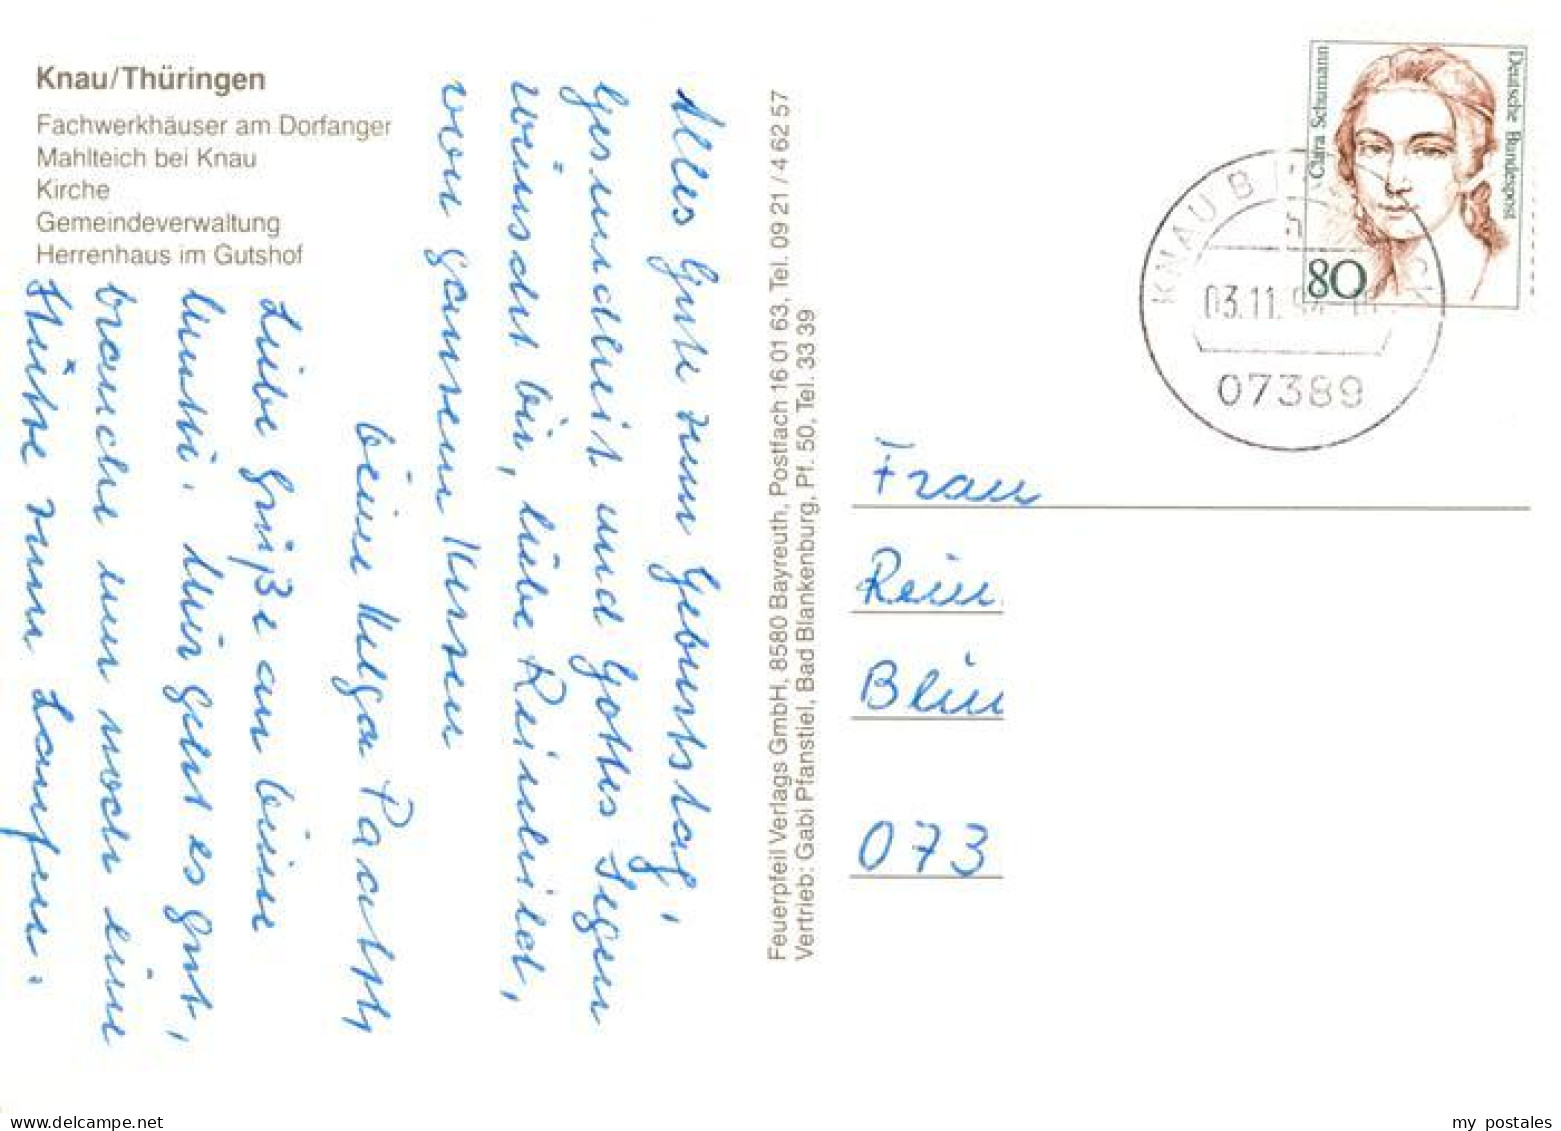 Knau/Thüringen
Fachwerkhäuser am Dorfanger
Mahlteich bei Knau
Kirche
Gemeindeverwaltung
Herrenhaus im Gutshof
Alles Gute zum Geburtstag,
Gesundheit und Gottes Segen
wünscht dir, liebe Reinhild,
von ganzem Herzen
deine Helga
Liebe Grüße an deine
Mutti. Mir geht es gut,
brauche nur noch eine
Stütze zum Laufen.
Feuerpfeil Verlags GmbH, 8580 Bayreuth, Postfach 16 01 63, Tel. 09 21 / 4 62 57
Vertrieb: Gabi Pfanstiel, Bad Blankenburg, Pf. 50, Tel. 33 39
Clara Schumann
Deutsche Bundespost
80
KNAU B
03.11.
07389
Frau
Rein
073
my postales